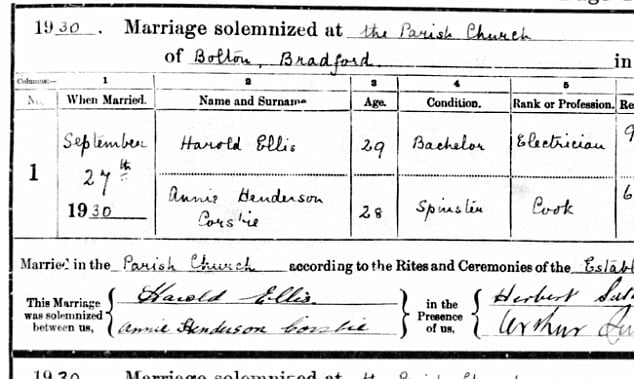 1930. Marriage solemnized at the Parish Church
of Bolton, Bradford. in
Columns:— 1 2 3 4 5
No. When Married. Name and Surname Age. Condition. Rank or Profession.
1 September 27th 1930
Harold Ellis 29 Bachelor Electrician
Annie Henderson Corsbie 28 Spinster Cook
Married in the Parish Church according to the Rites and Ceremonies of the
This Marriage was solemnized between us,
Harold Ellis
Annie Henderson Corsbie
in the Presence of us,
Herbert
Arthur
1930. Marriage solemnized at the Parish Church